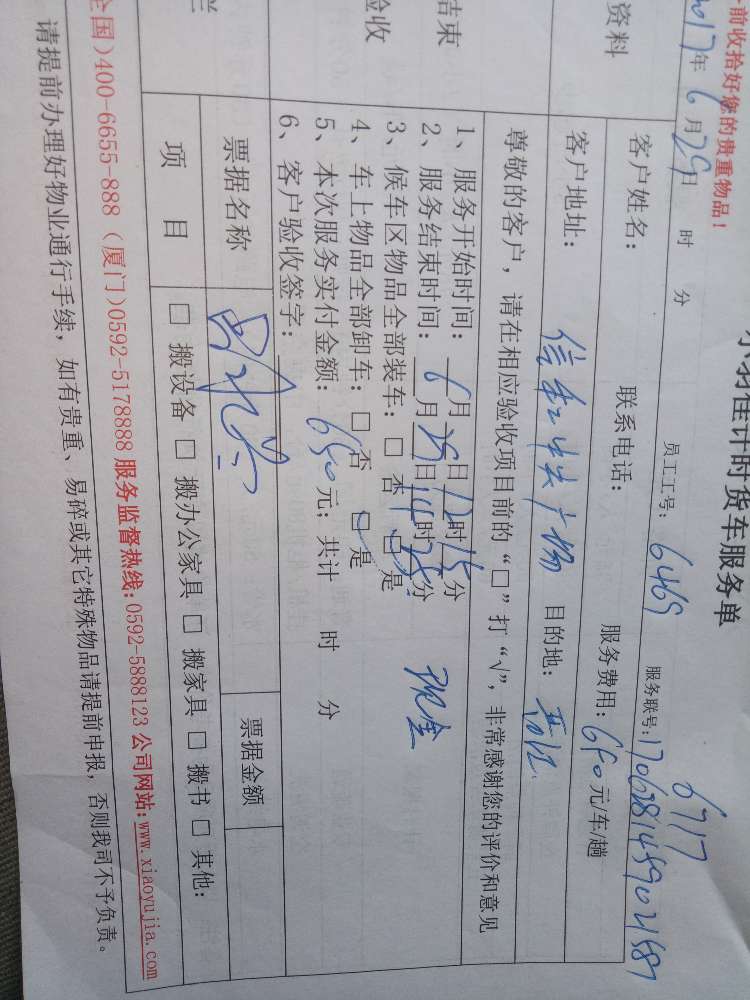 前收拾好您的贵重物品！
小羽佳计时货车服务单
2017年6月29日 时 分 员工工号：6469 服务联号：1706281459021687
6717
资料
客户姓名： 联系电话： 服务费用：650元/车/趟
客户地址： 目的地：
尊敬的客户，请在相应验收项目前的“□”打“√”，非常感谢您的评价和意见
结束
验收
1、服务开始时间：6月 日12时15分
2、服务结束时间： 月29日14时25分
3、候车区物品全部装车：□ 否 □ 是 现金
4、车上物品全部卸车：□ 否 □ 是
5、本次服务实付金额：650元；共计 时 分
6、客户验收签字：
栏
票据名称 票据金额
项 目 □ 搬设备 □ 搬办公家具 □ 搬家具 □ 搬书 □ 其他：
全国)400-6655-888 (厦门)0592-5178888 服务监督热线:0592-5888123 公司网站:www.xiaoyujia.com
请提前办理好物业通行手续，如有贵重、易碎或其它特殊物品请提前申报，否则我司不予负责。